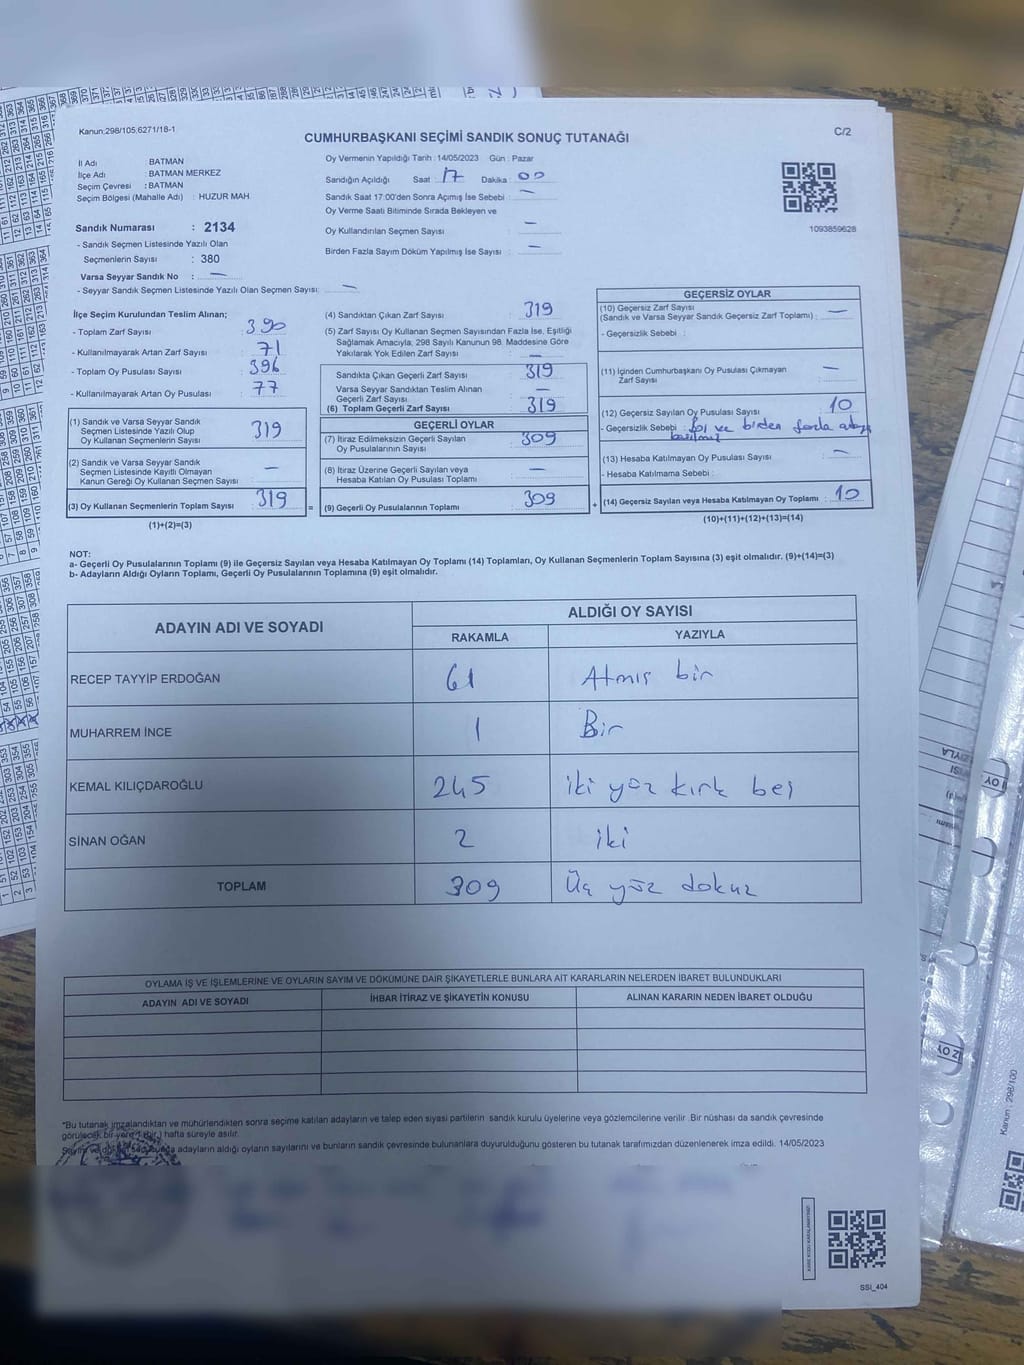 Kanun:298/105;6271/18-1
CUMHURBAŞKANI SEÇİMİ SANDIK SONUÇ TUTANAĞI
C/2
İl Adı : BATMAN
İlçe Adı : BATMAN MERKEZ
Seçim Çevresi : BATMAN
Seçim Bölgesi (Mahalle Adı) : HUZUR MAH
Sandık Numarası : 2134
- Sandık Seçmen Listesinde Yazılı Olan
Seçmenlerin Sayısı : 380
Varsa Seyyar Sandık No : —
- Seyyar Sandık Seçmen Listesinde Yazılı Olan Seçmen Sayısı: —
Oy Vermenin Yapıldığı Tarih : 14/05/2023 Gün : Pazar
Sandığın Açıldığı Saat : 17 Dakika : 00
Sandık Saat 17:00'den Sonra Açımış İse Sebebi : —
Oy Verme Saati Bitiminde Sırada Bekleyen ve
Oy Kullandırılan Seçmen Sayısı : —
Birden Fazla Sayım Döküm Yapılmış İse Sayısı : —
1093859628
İlçe Seçim Kurulundan Teslim Alınan;
- Toplam Zarf Sayısı : 390
- Kullanılmayarak Artan Zarf Sayısı : 71
- Toplam Oy Pusulası Sayısı : 396
- Kullanılmayarak Artan Oy Pusulası : 77
(1) Sandık ve Varsa Seyyar Sandık
Seçmen Listesinde Yazılı Olup
Oy Kullanan Seçmenlerin Sayısı : 319
(2) Sandık ve Varsa Seyyar Sandık
Seçmen Listesinde Kayıtlı Olmayan
Kanun Gereği Oy Kullanan Seçmen Sayısı : —
(3) Oy Kullanan Seçmenlerin Toplam Sayısı : 319
(1)+(2)=(3)
=
(4) Sandıktan Çıkan Zarf Sayısı : 319
(5) Zarf Sayısı Oy Kullanan Seçmen Sayısından Fazla İse, Eşitliği
Sağlamak Amacıyla, 298 Sayılı Kanunun 98. Maddesine Göre
Yakılarak Yok Edilen Zarf Sayısı : —
Sandıkta Çıkan Geçerli Zarf Sayısı : 319
Varsa Seyyar Sandıktan Teslim Alınan
Geçerli Zarf Sayısı : —
(6) Toplam Geçerli Zarf Sayısı : 319
GEÇERLİ OYLAR
(7) İtiraz Edilmeksizin Geçerli Sayılan
Oy Pusulalarının Sayısı : 309
(8) İtiraz Üzerine Geçerli Sayılan veya
Hesaba Katılan Oy Pusulası Toplamı : —
(9) Geçerli Oy Pusulalarının Toplamı : 309
+
GEÇERSİZ OYLAR
(10) Geçersiz Zarf Sayısı
(Sandık ve Varsa Seyyar Sandık Geçersiz Zarf Toplamı) : —
- Geçersizlik Sebebi :
(11) İçinden Cumhurbaşkanı Oy Pusulası Çıkmayan
Zarf Sayısı : —
(12) Geçersiz Sayılan Oy Pusulası Sayısı : 10
- Geçersizlik Sebebi : ve birden fazla
(13) Hesaba Katılmayan Oy Pusulası Sayısı : —
- Hesaba Katılmama Sebebi :
(14) Geçersiz Sayılan veya Hesaba Katılmayan Oy Toplamı : 10
(10)+(11)+(12)+(13)=(14)
NOT:
a- Geçerli Oy Pusulalarının Toplamı (9) ile Geçersiz Sayılan veya Hesaba Katılmayan Oy Toplamı (14) Toplamları, Oy Kullanan Seçmenlerin Toplam Sayısına (3) eşit olmalıdır. (9)+(14)=(3)
b- Adayların Aldığı Oyların Toplamı, Geçerli Oy Pusulalarının Toplamına (9) eşit olmalıdır.
ADAYIN ADI VE SOYADI
ALDIĞI OY SAYISI
RAKAMLA YAZIYLA
RECEP TAYYİP ERDOĞAN 61 Atmış bir
MUHARREM İNCE 1 Bir
KEMAL KILIÇDAROĞLU 245 iki yüz kırk beş
SİNAN OĞAN 2 iki
TOPLAM 309 Üç yüz dokuz
OYLAMA İŞ VE İŞLEMLERİNE VE OYLARIN SAYIM VE DÖKÜMÜNE DAİR ŞİKAYETLERLE BUNLARA AİT KARARLARIN NELERDEN İBARET BULUNDUKLARI
ADAYIN ADI VE SOYADI İHBAR İTİRAZ VE ŞİKAYETİN KONUSU ALINAN KARARIN NEDEN İBARET OLDUĞU
*Bu tutanak imzalandıktan ve mühürlendikten sonra seçime katılan adayların ve talep eden siyasi partilerin sandık kurulu üyelerine veya gözlemcilerine verilir .Bir nüshası da sandık çevresinde
görülecek bir yere 1 (bir) hafta süreyle asılır.
Sayım ve döküm sonucunda adayların aldığı oyların sayılarını ve bunların sandık çevresinde bulunanlara duyurulduğunu gösteren bu tutanak tarafımızdan düzenlenerek imza edildi. 14/05/2023
KARE KODU KARALAMAYINIZ!
SSİ_404
Kanun : 298/100